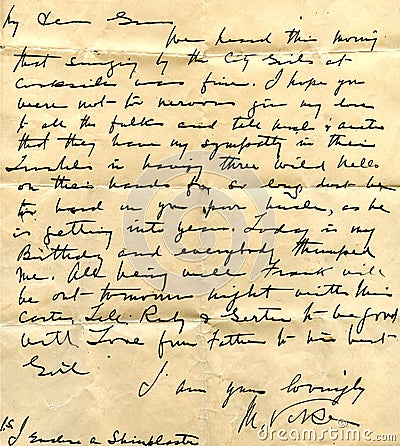 My Dear Gem
We heard this morning
that singing by the City Girls at
was fine. I hope you
were not to nervous give my love
to all the folks and tell Uncle & auntie
that they have my sympathy in their
troubles in having three wild
on their hands for so long, dont be
to hard on your poor Uncle, as he
is getting into years. Today is my
Birthday and everybody thumped
me. All being well Frank will
be out tomorrow night with his
Tell Ruby & Gertie to be good
with Love from Father to his best
Girl
I am yours lovingly
M.
P.S. I Enclose a Shinplaster
dreamstime